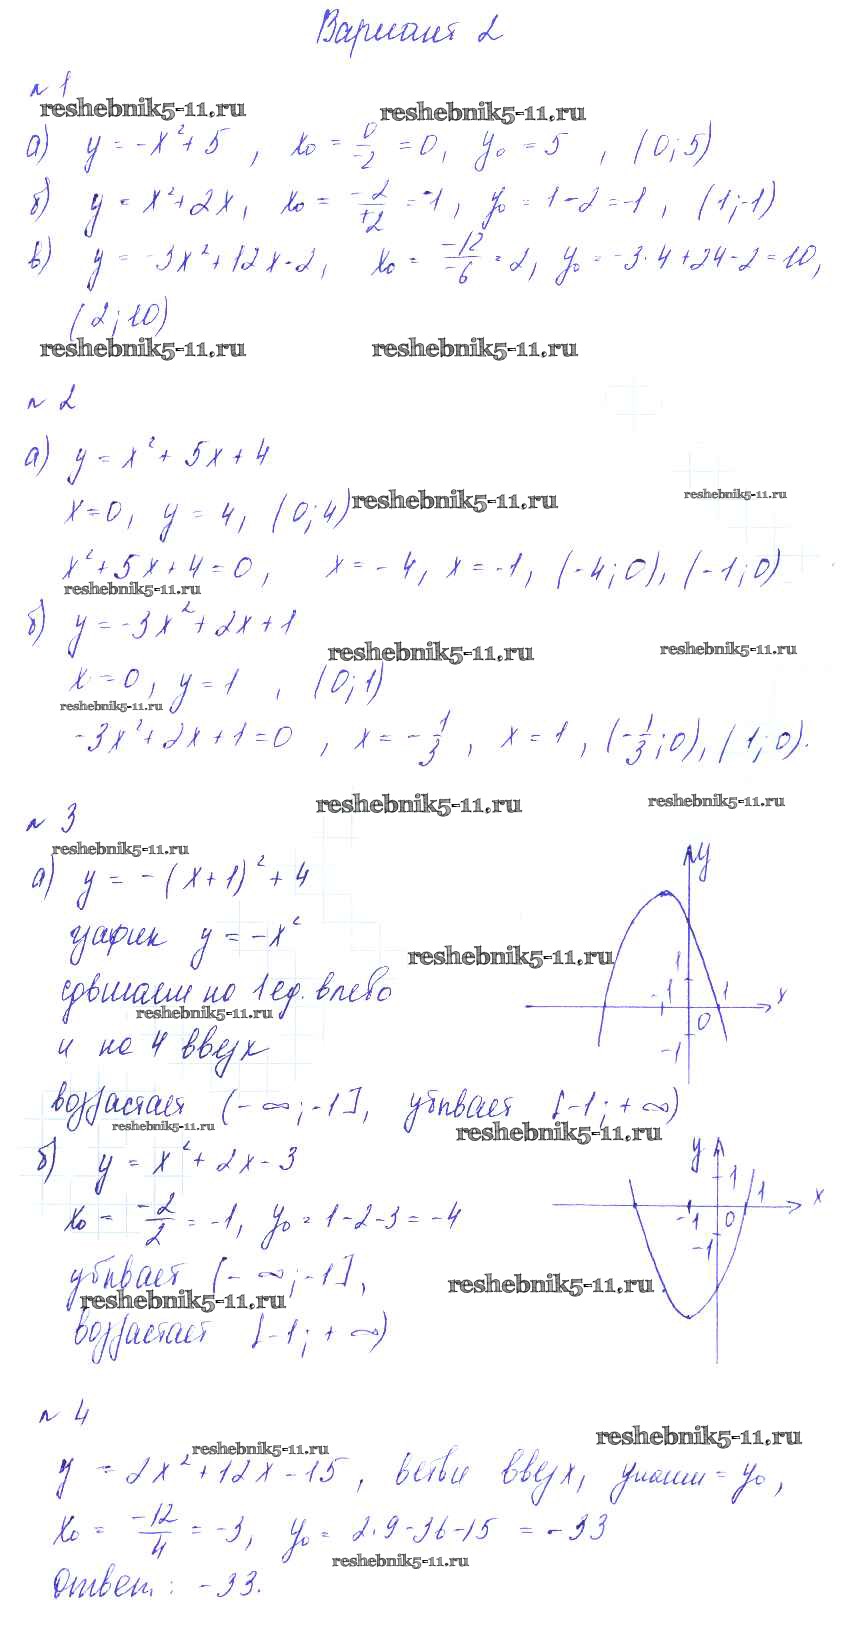 Вариант 2
№ 1
reshebnik5-11.ru reshebnik5-11.ru
а) y = -x² + 5, x₀ = 0/-2 = 0, y₀ = 5, (0; 5)
б) y = x² + 2x, x₀ = -2/+2 = -1, y₀ = 1 - 2 = -1, (1; -1)
в) y = -3x² + 12x - 2, x₀ = -12/-6 = 2, y₀ = -3·4 + 24 - 2 = 10,
(2; 10)
reshebnik5-11.ru reshebnik5-11.ru
№ 2
а) y = x² + 5x + 4
reshebnik5-11.ru reshebnik5-11.ru
x = 0, y = 4, (0; 4)
x² + 5x + 4 = 0, x = -4, x = -1, (-4; 0), (-1; 0)
reshebnik5-11.ru
б) y = -3x² + 2x + 1
reshebnik5-11.ru reshebnik5-11.ru
x = 0, y = 1, (0; 1)
reshebnik5-11.ru
-3x² + 2x + 1 = 0, x = -1/3, x = 1, (-1/3; 0), (1; 0).
reshebnik5-11.ru reshebnik5-11.ru
№ 3
reshebnik5-11.ru
а) y = -(x + 1)² + 4
график y = -x²
reshebnik5-11.ru
сдвигаем на 1 ед. влево
reshebnik5-11.ru
и на 4 вверх
y
1
-1 1 x
0
-1
возрастает (-∞; -1], убывает [-1; +∞)
reshebnik5-11.ru reshebnik5-11.ru
б) y = x² + 2x - 3
x₀ = -2/2 = -1, y₀ = 1 - 2 - 3 = -4
y
1
1 x
-1 0
-1
убывает (-∞; -1],
reshebnik5-11.ru reshebnik5-11.ru
возрастает [-1; +∞)
№ 4
reshebnik5-11.ru reshebnik5-11.ru
y = 2x² + 12x - 15, ветви вверх, yнаим = y₀,
x₀ = -12/4 = -3, y₀ = 2·9 - 36 - 15 = -33
reshebnik5-11.ru
Ответ: -33.